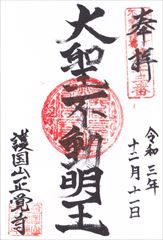 奉拝
令和三年
十二月十一日
大聖不動明王
護国山正覚寺